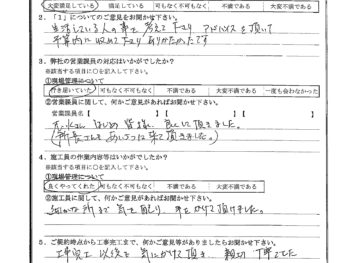 大変満足している 満足している 可も不可も無く 不満である 大変不満である
2.「1」についてのご意見をお聞かせ下さい。
生活している人の事を考えて下さり アドバイスを頂いて
予算内に収めて下さり ありがたかったです
3. 弊社の営業課員の対応はいかがでしたか?
※該当する項目に○を記入して下さい。
①現場管理について
行き届いていた 可も不可もなく 不満である 大変不満である 一度も会わなかった
②営業課員に関して、何かご意見があればお聞かせ下さい。
営業課員名【 】
はじめ 皆様 良くして頂きました。
(所長さんもあいさつに来て頂きました。)
4. 施工員の作業内容等はいかがでしたか?
※該当する項目に○を記入して下さい。
①現場管理について
良くやってくれた 可も不可もなく 不満である 大変不満である
②施工員に関して、何かご意見があればお聞かせ下さい。
細かな所まで気を配り、手をかけて頂けました。
5. ご契約時点から工事完工まで、何かご意見等がありましたらお聞かせ下さい。
工事完工 以後も 気にかけて頂き 親切 丁寧でした